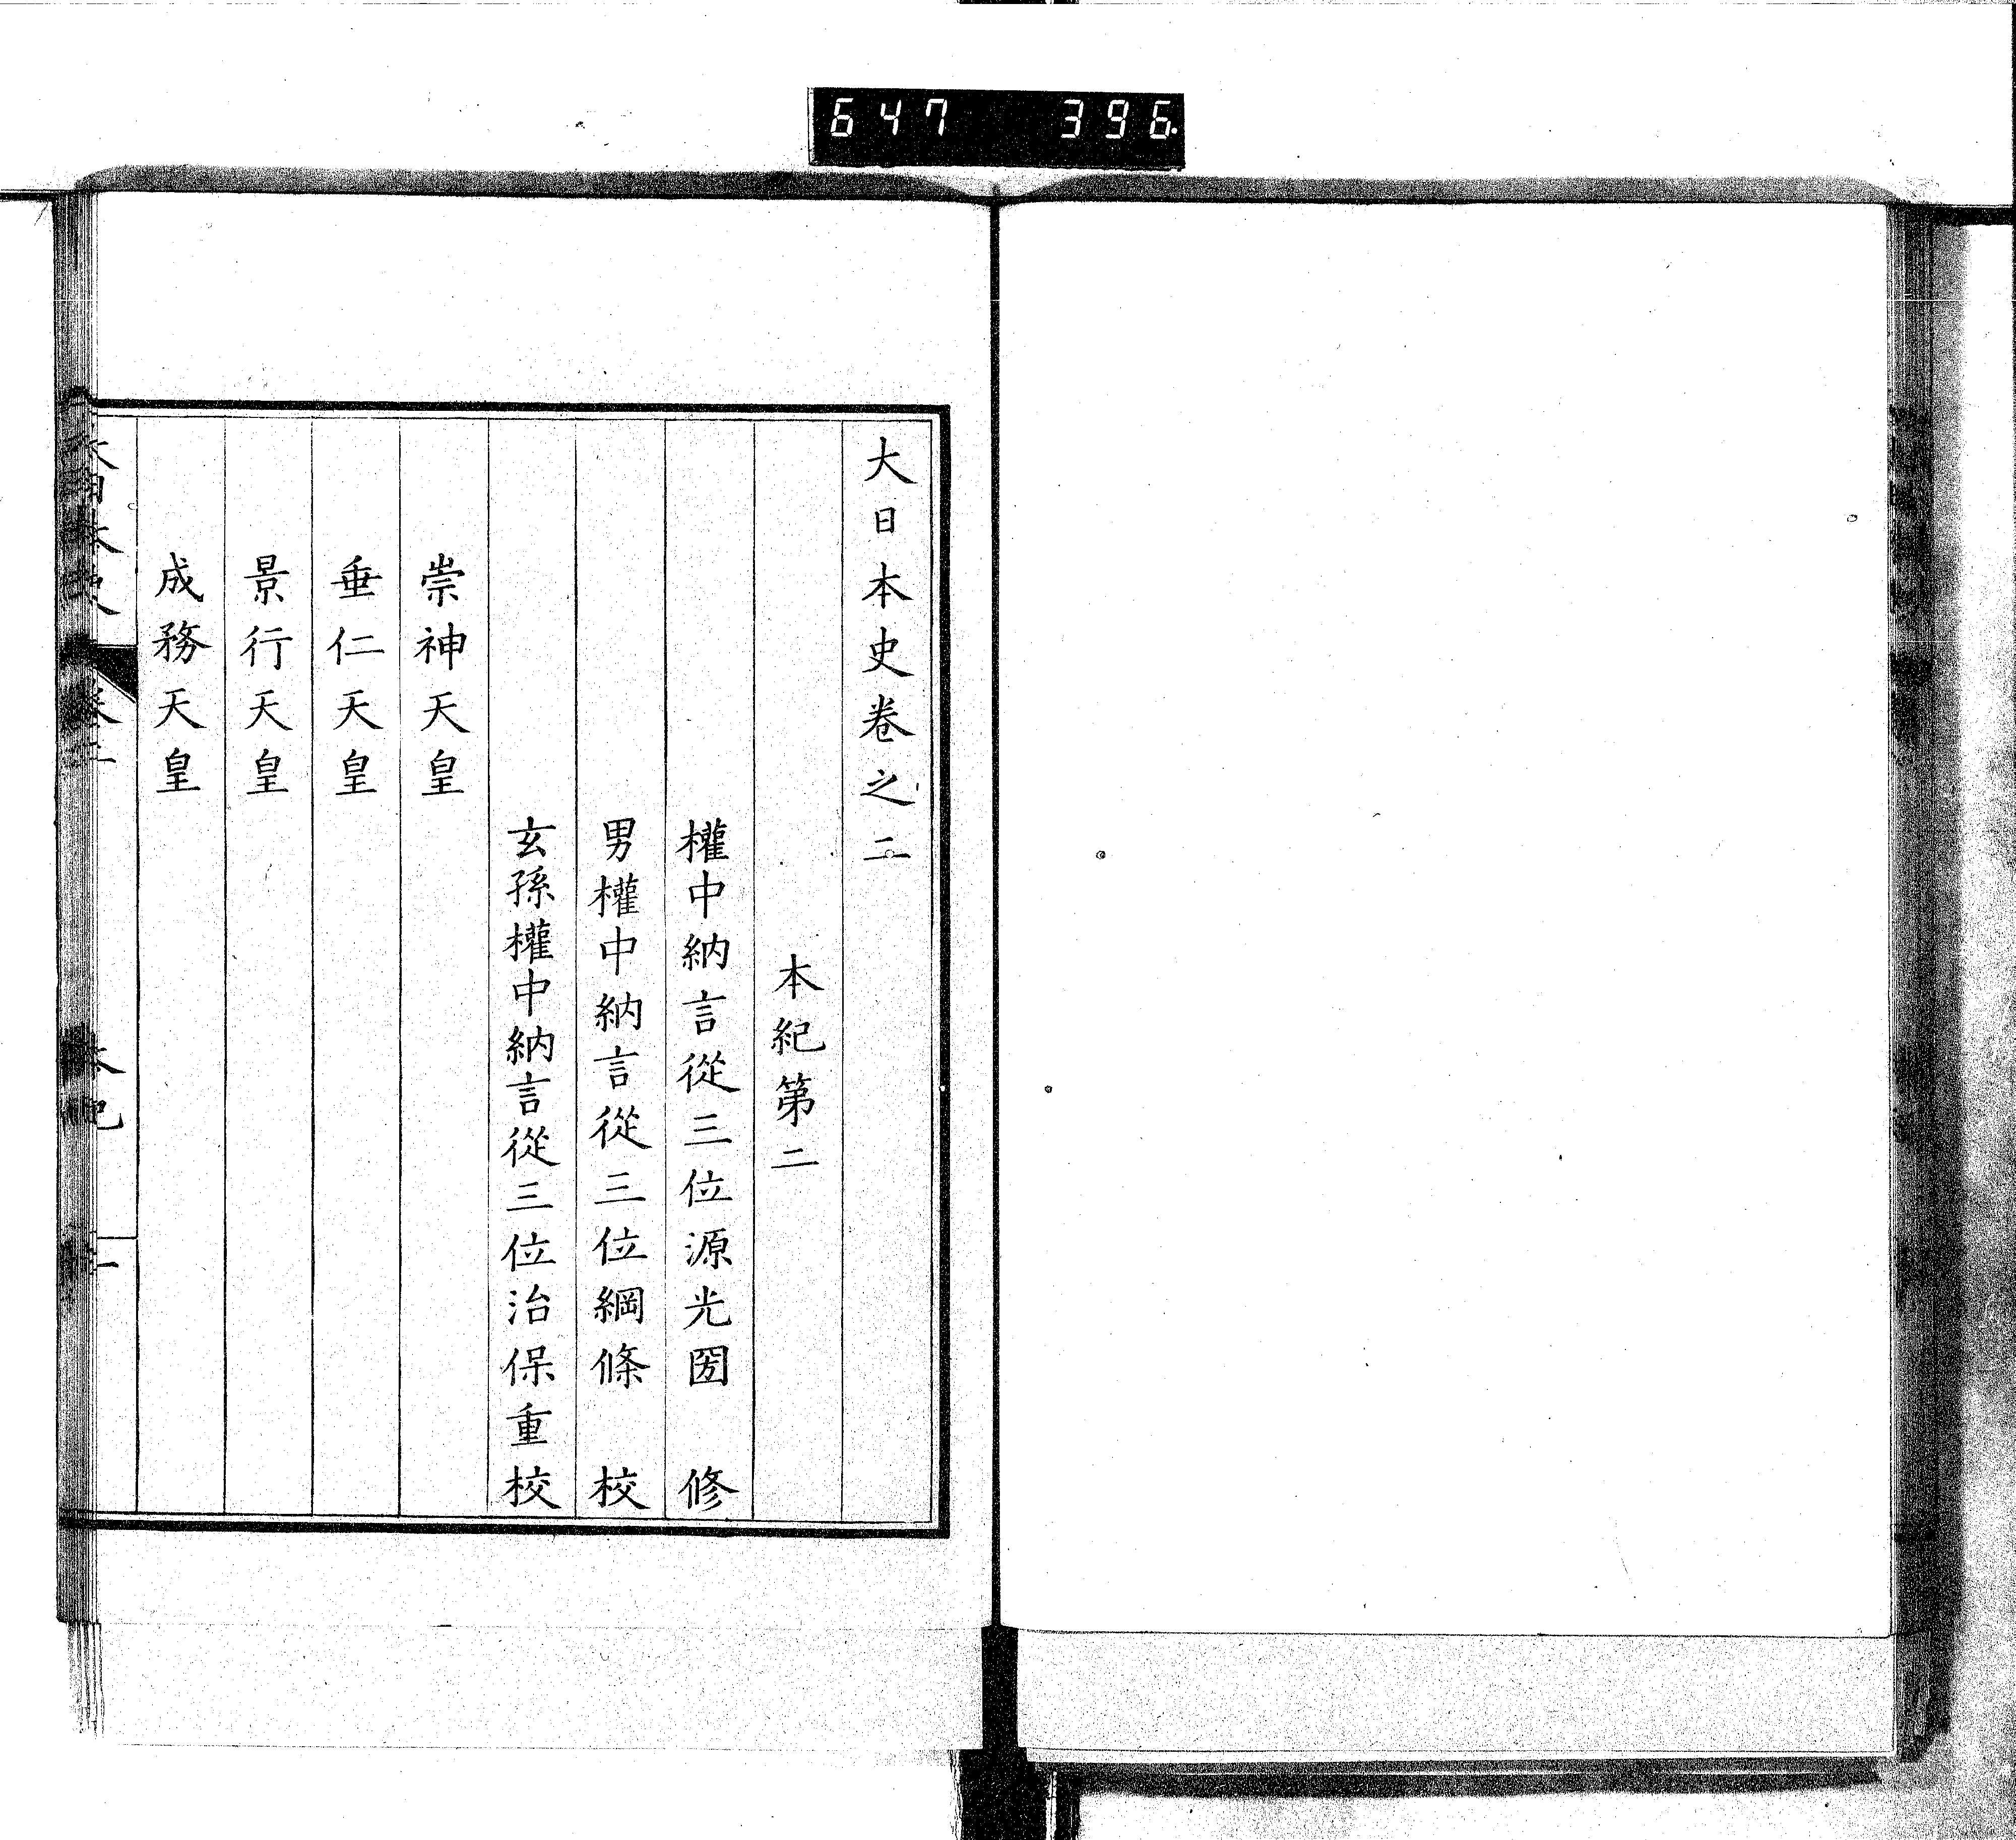 647 396
大日本史卷之二
本紀第二
權中納言從三位源光圀 修
男權中納言從三位綱條 校
玄孫權中納言從三位治保重校
崇神天皇
垂仁天皇
景行天皇
成務天皇
大日本史 卷二 本紀 一